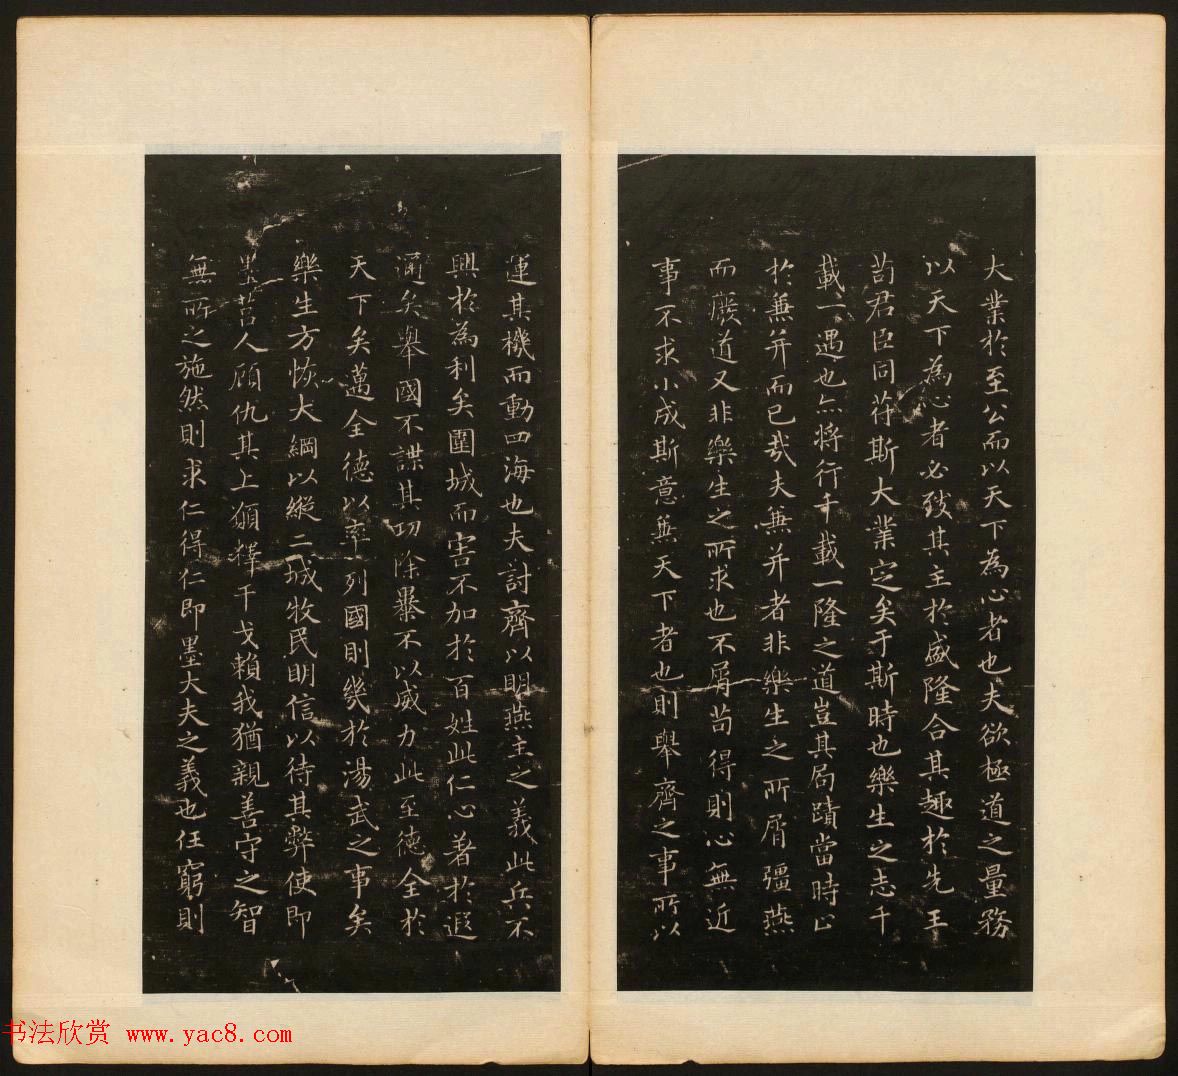 大業於至公而以天下為心者也夫欲極道之量務
以天下為心者必致其主於盛隆合其趣於先王
苟君臣同荷斯大業定矣于斯時也樂生之志千
載一遇也亦將行千載一隆之道豈其局蹟當時止
於兼并而已哉夫兼并者非樂生之所屑彊燕
而廢道又非樂生之所求也不屑苟得則心無近
事不求小成斯意兼天下者也則舉齊之事所以
運其機而動四海也夫討齊以明燕主之義此兵不
興於為利矣圍城而害不加於百姓此仁心著於遐
邇矣舉國不謀其功除暴不以威力此至德全於
天下矣邁全德以率列國則幾於湯武之事矣
樂生方恢大綱以縱二城牧民明信以待其弊使即
墨莒人顧仇其上願釋干戈賴我猶親善守之智
無所之施然則求仁得仁即墨大夫之義也任窮則
书法欣赏 www.yac8.com